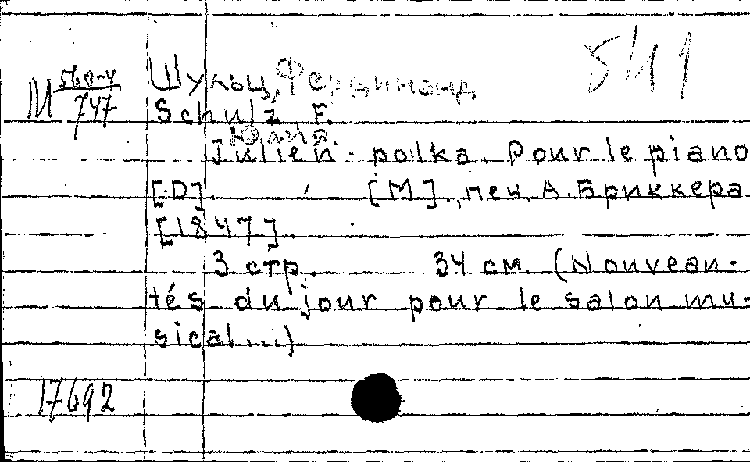 Шульц, Фердинанд 541
М 560-4/747 Schulz F.
Julien-polka. Pour le piano
[D]. [М]., печ. А. Бриккера
[1847].
3 стр. 34 см. (Nouveau-
tés du jour pour le salon mu-
sical...)
17692